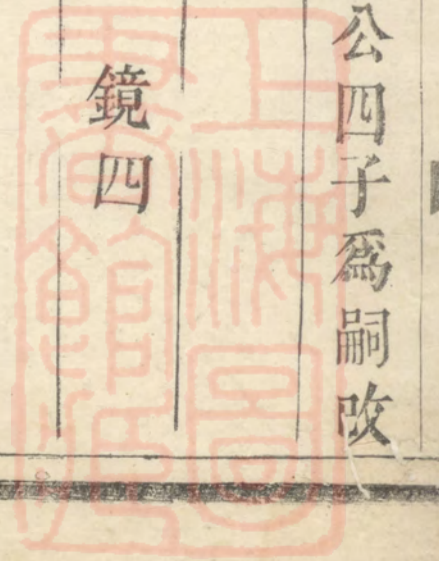 公四子爲嗣改
鏡四
上海圖
書館藏